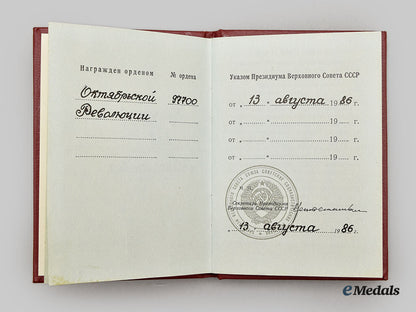 Награжден орденом № ордена
Октябрьской 97700
Революции
Указом Президиума Верховного Совета СССР
от „ 13 „ августа 1986 г.
от „ „ 19 г.
от „ „ 19 г.
от „ „ 19 г.
Секретарь Президиума
Верховного Совета СССР
„ 13 „ августа 1986 г.
eMedals